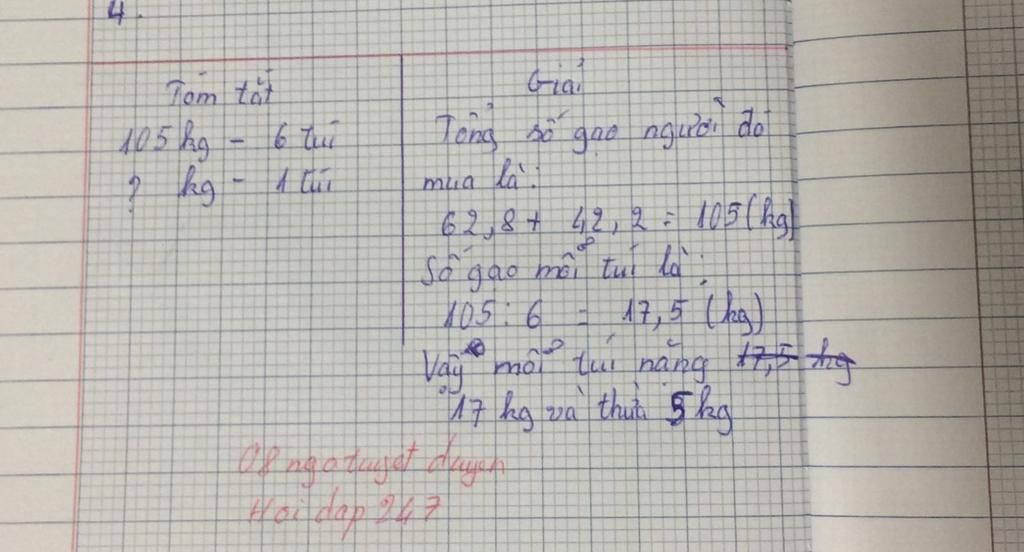 4.
Tóm tắt
105 kg - 6 túi
? kg - 1 túi
Giải
Tổng số gạo người đó
mua là:
62,8 + 42,2 = 105 (kg)
Số gạo mỗi túi là:
105 : 6 = 17,5 (kg)
Vậy mỗi túi nặng 17,5 kg
17 kg và thừa 5 kg
08 ngatuyet duyen
Hoi dap 247